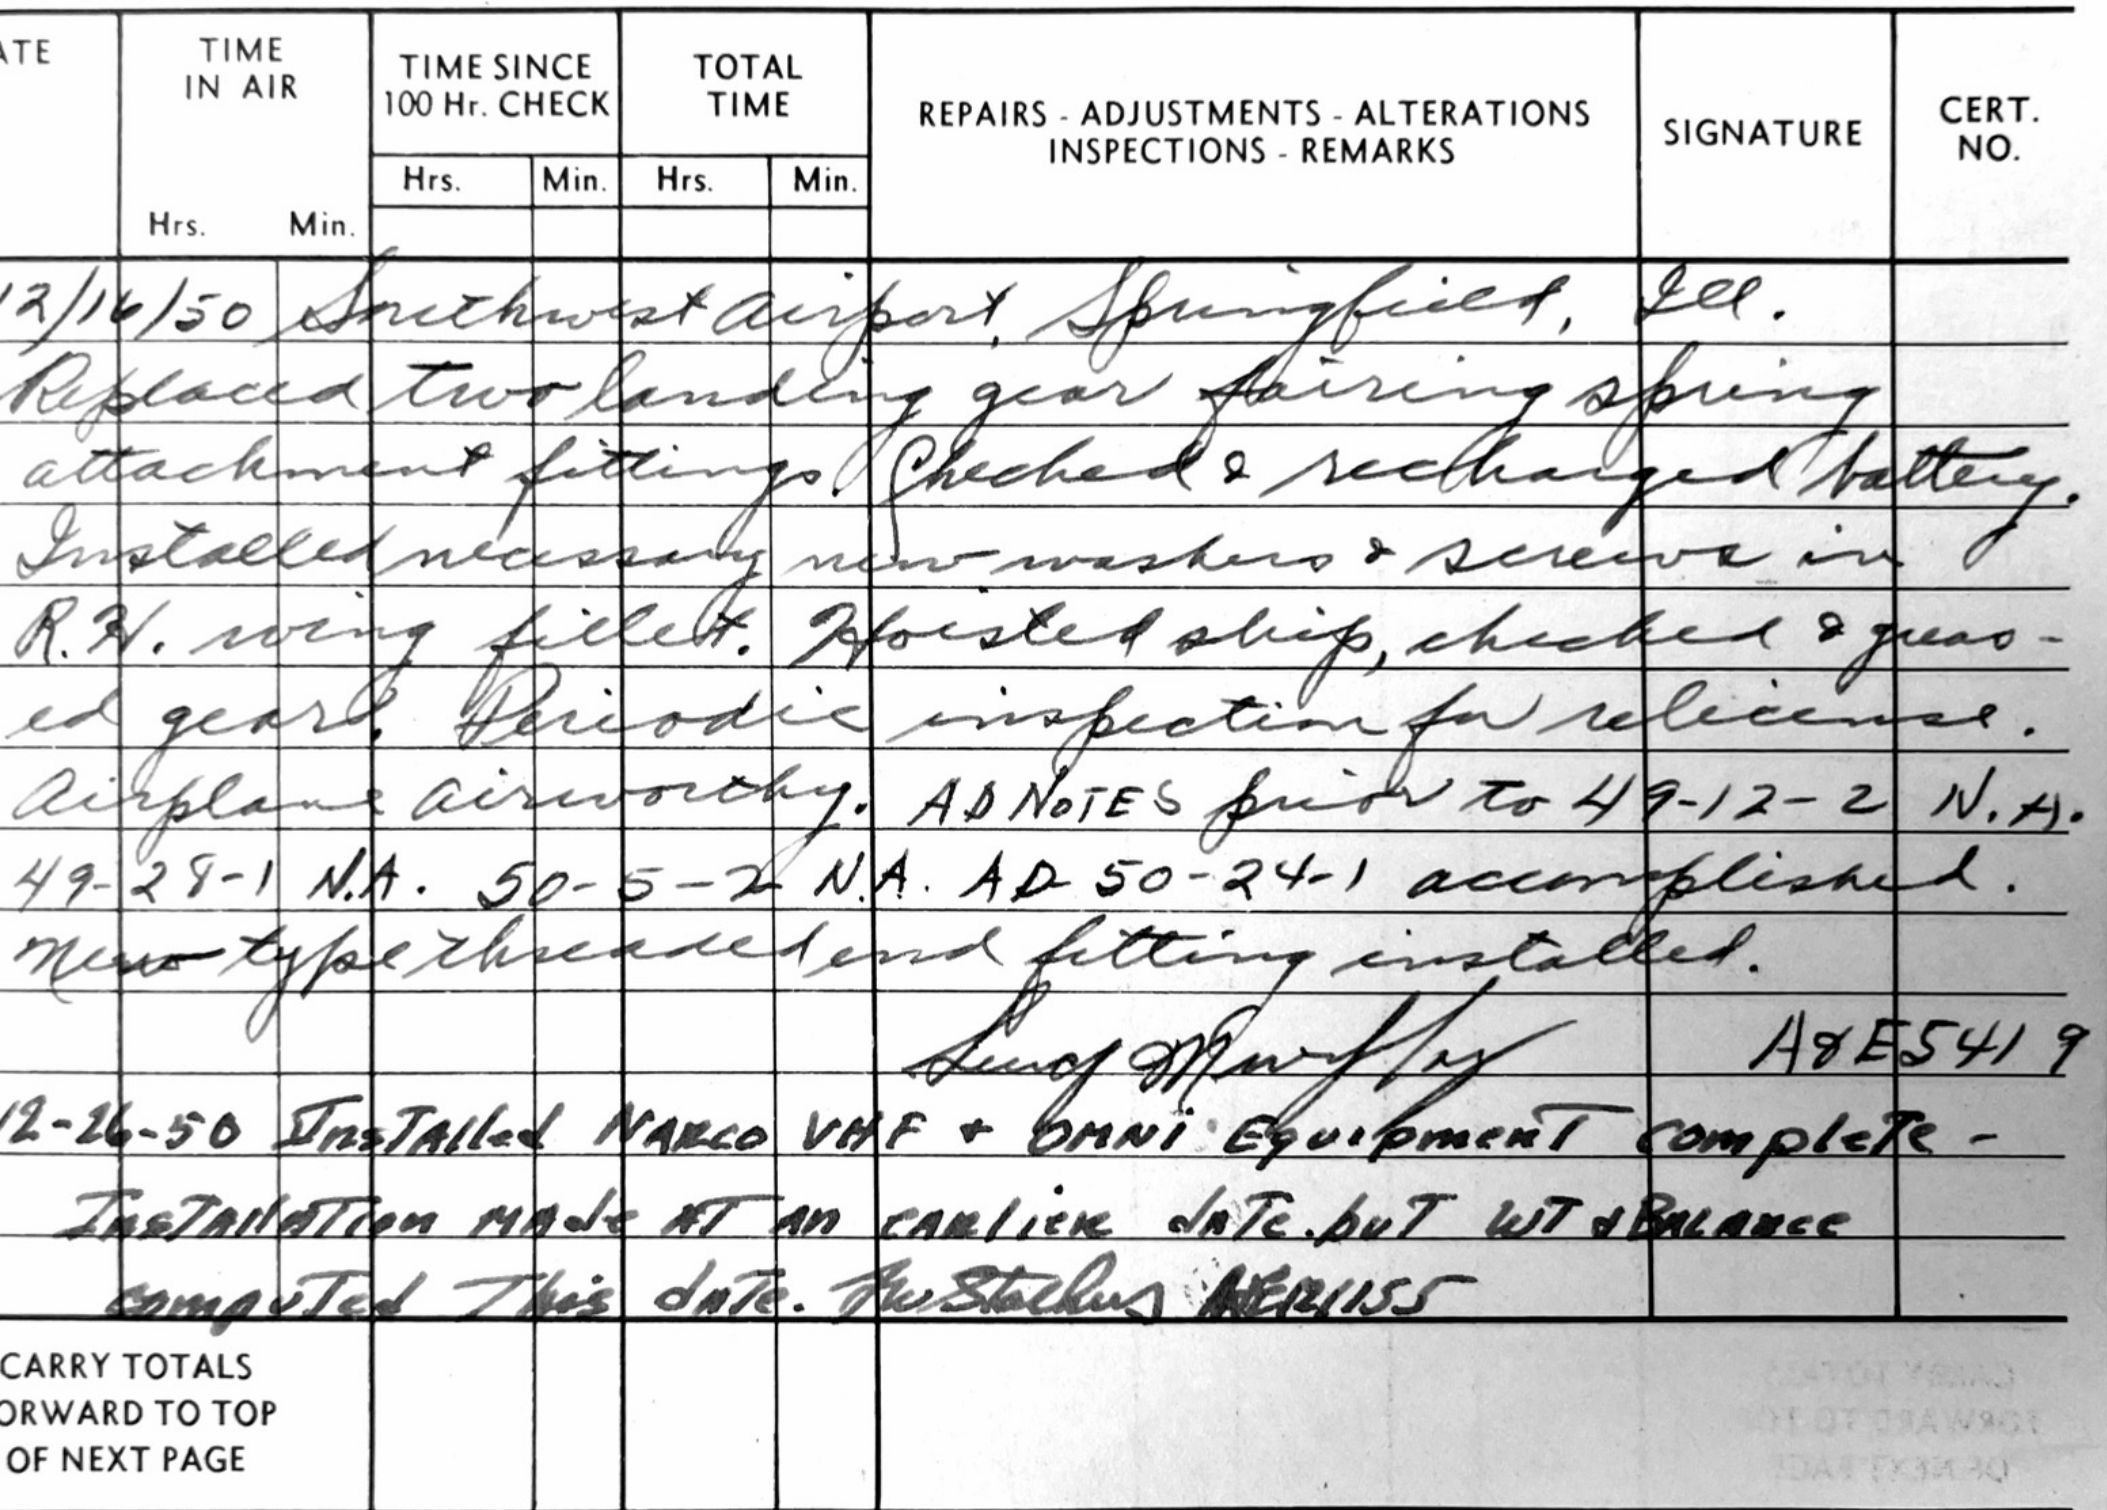 ATE
TIME
IN AIR
Hrs. Min.
TIME SINCE
100 Hr. CHECK
Hrs. Min.
TOTAL
TIME
Hrs. Min.
REPAIRS - ADJUSTMENTS - ALTERATIONS
INSPECTIONS - REMARKS
SIGNATURE
CERT.
NO.
12/16/50 Southwest Airport, Springfield, Ill.
Replaced two landing gear fairing spring
attachment fittings. Checked & recharged battery.
Installed necessary new washers & screws in
R.H. wing fillet. Hoisted ship, checked & greas-
ed gear. Periodic inspection for relicense.
Airplane airworthy. AD NOTES prior to 49-12-2 N.A.
49-28-1 N.A. 50-5-2 N.A. AD 50-24-1 accomplished.
New type threaded end fitting installed.
A&E5419
12-26-50 Installed NARCO VHF + OMNI Equipment complete -
Installation made at an earlier date but WT & Balance
computed This date.
CARRY TOTALS
ORWARD TO TOP
OF NEXT PAGE